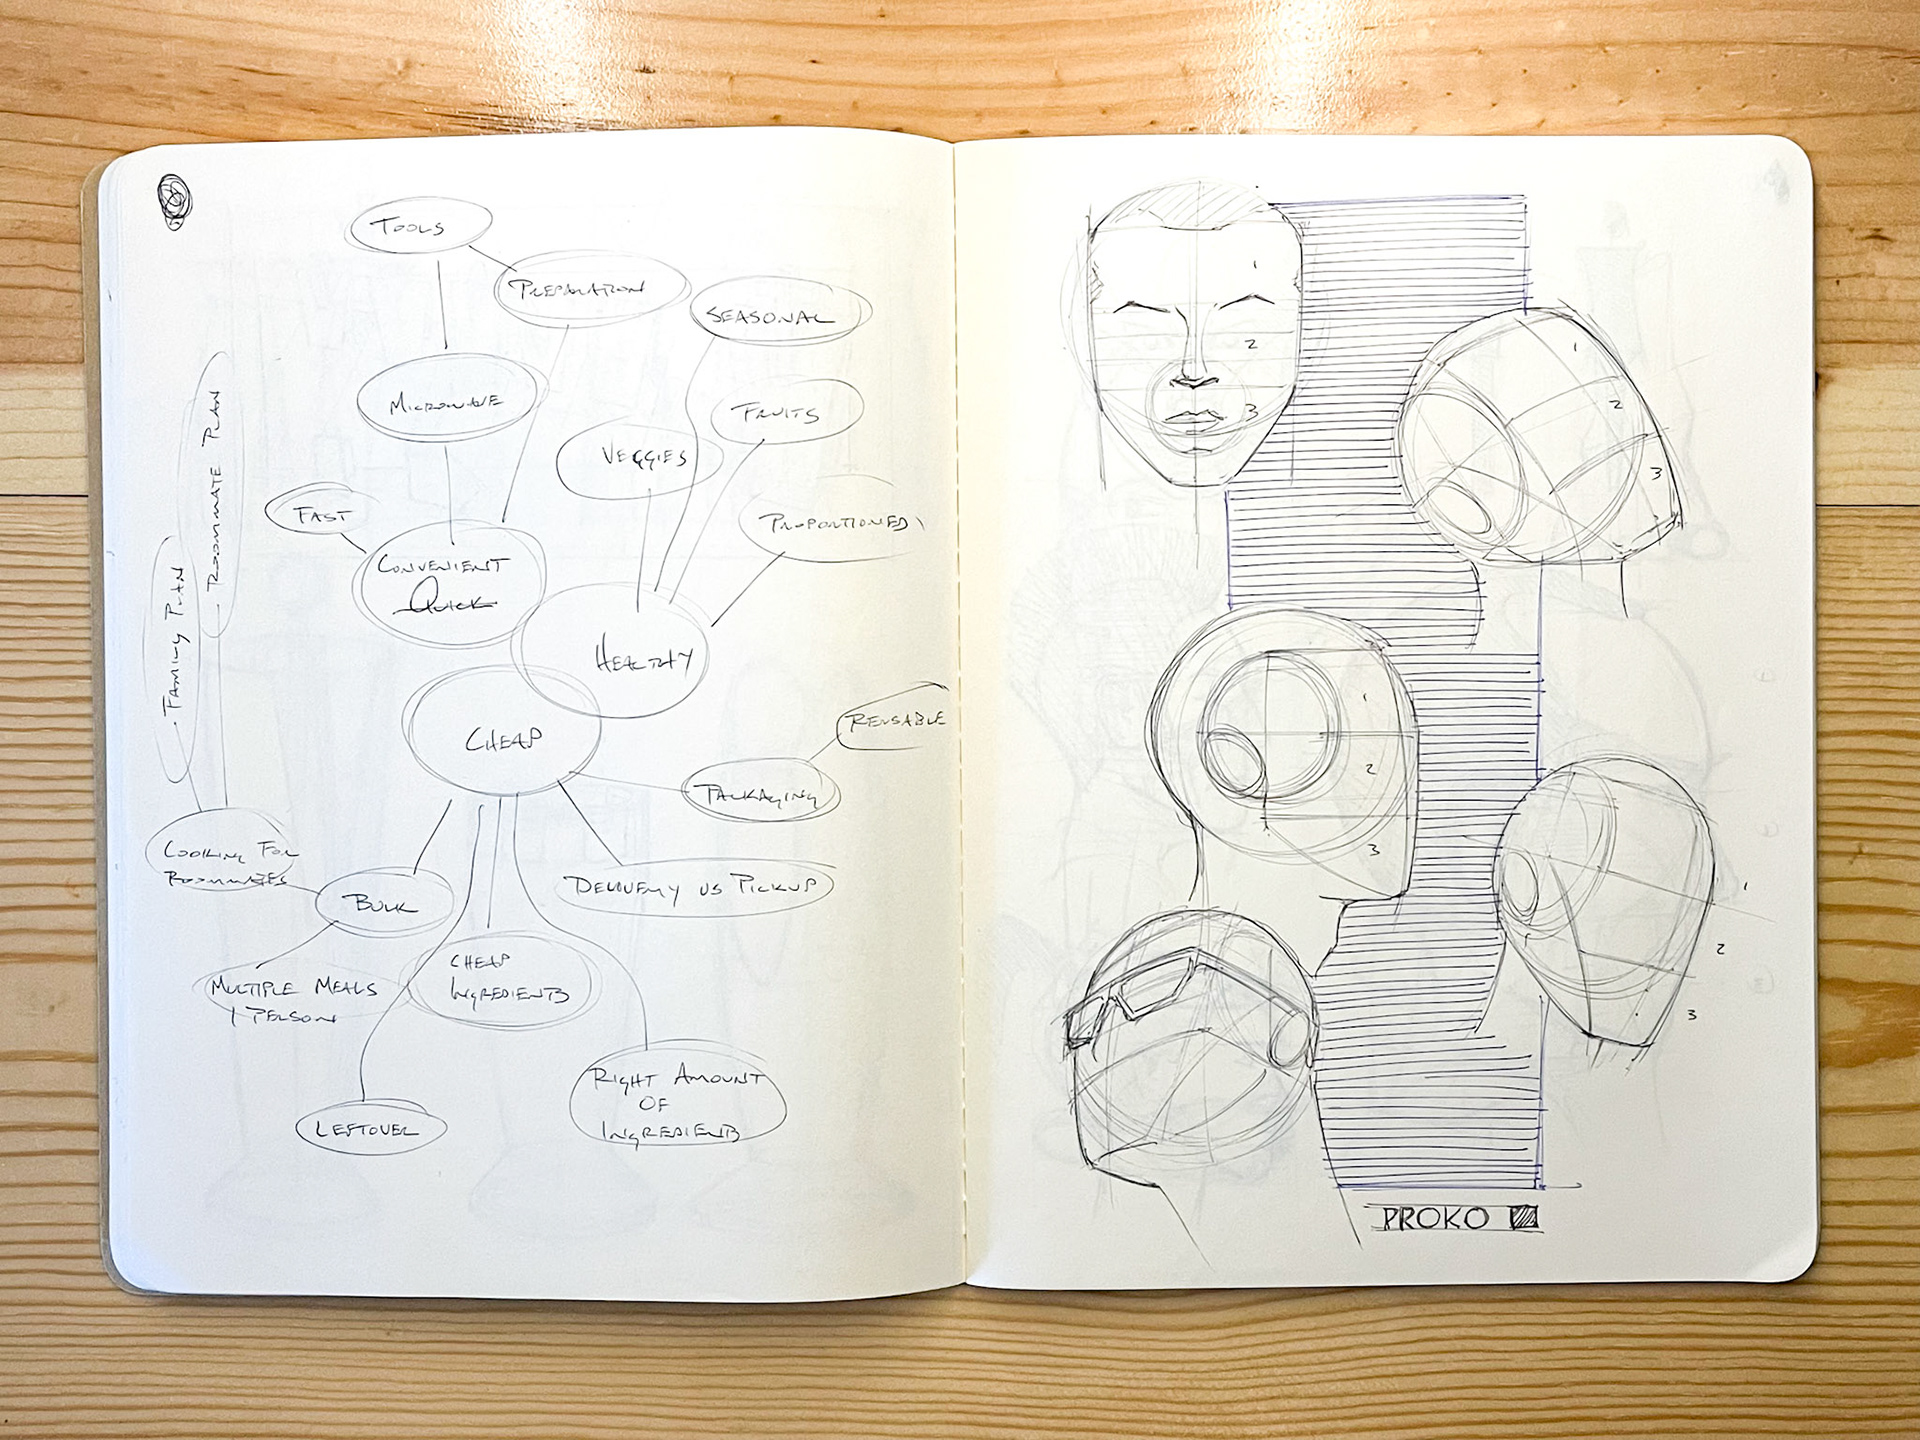 TOOLS
PREPARATION
SEASONAL
MICROWAVE
FRUITS
VEGGIES
FAST
PROPORTIONED
CONVENIENT
QUICK
HEALTHY
ROOMMATE PLAN
FAMILY PLAN
CHEAP
REUSABLE
PACKAGING
COOKING FOR
ROOMMATES
BULK
DELIVERY VS PICKUP
MULTIPLE MEALS
1 PERSON
CHEAP
INGREDIENTS
RIGHT AMOUNT
OF
INGREDIENTS
LEFTOVER
1
2
3
1
2
3
1
2
3
1
2
3
PROKO